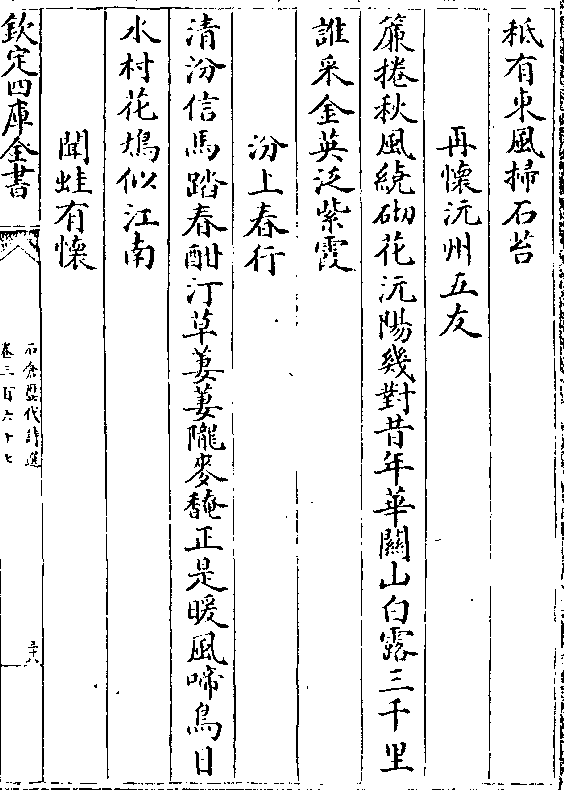 秪有東風掃石苔
再懷沅州五友
簾捲秋風繞砌花沅陽幾對昔年華關山白露三千里
誰采金英泛紫霞
汾上春行
清汾信馬踏春酣汀草萋萋隴麥馣正是暖風啼鳥日
水村花塢似江南
聞蛙有懷
欽定四庫全書
石倉歷代詩選
卷三百六十七
三十八